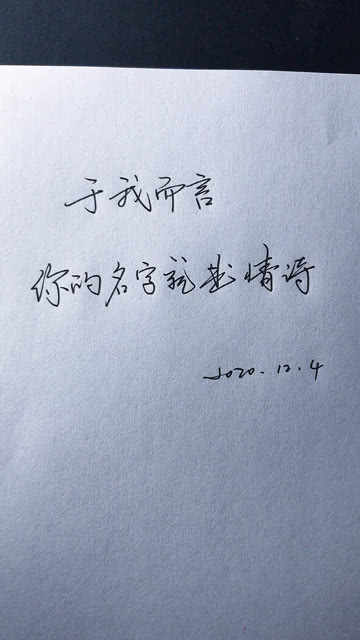 于我而言
你的名字就是情诗
2020.12.4